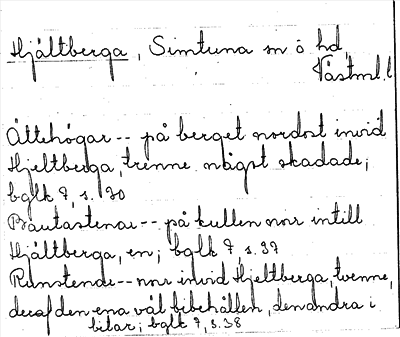 Hjältberga, Simtuna sn o hd,
Västml. l.
Ättehögar -- på berget nordost invid
Hjeltberga, trenne något skadade;
bglk 7, s. 30
Bautastenar -- på kullen norr intill
Hjältberga, en; bglk 7, s. 37
Runstenar -- norr invid Hjeltberga, tvenne,
deraf den ena väl bibehållen, den andra i
bitar; bglk 7, s. 38